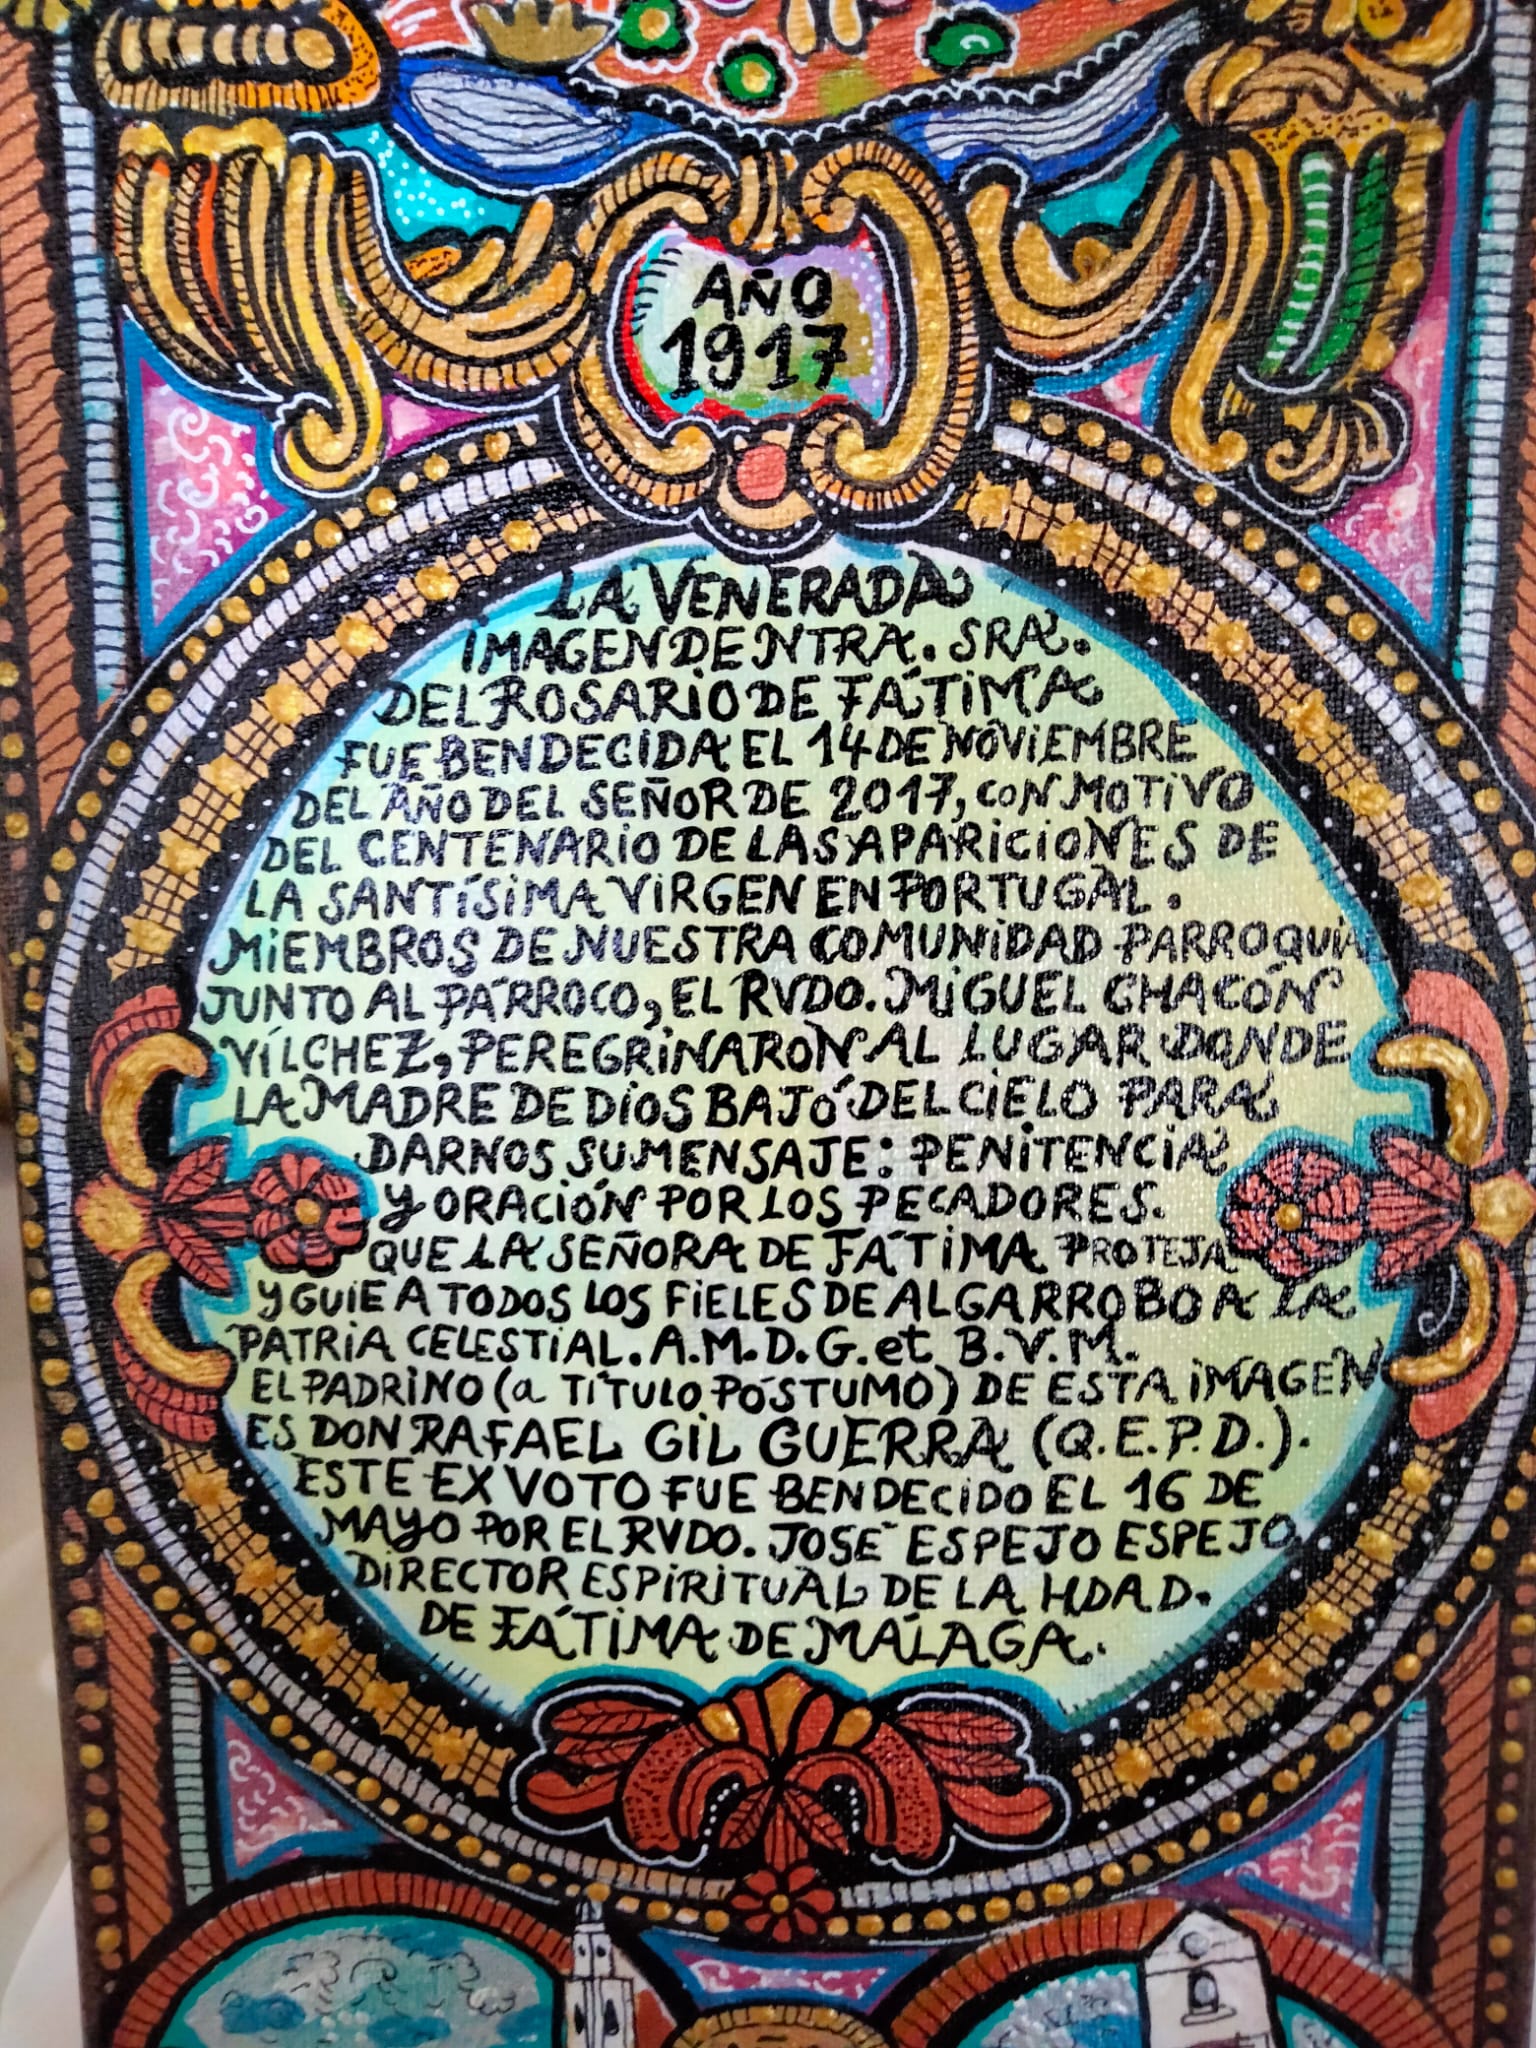 AÑO
1917
LA VENERADA
IMAGEN DE NTRA. SRA.
DEL ROSARIO DE FÁTIMA
FUE BENDECIDA EL 14 DE NOVIEMBRE
DEL AÑO DEL SEÑOR DE 2017, CON MOTIVO
DEL CENTENARIO DE LAS APARICIONES DE
LA SANTÍSIMA VIRGEN EN PORTUGAL.
MIEMBROS DE NUESTRA COMUNIDAD PARROQUIAL
JUNTO AL PÁRROCO, EL RVDO. MIGUEL CHACÓN
VÍLCHEZ, PEREGRINARON AL LUGAR DONDE
LA MADRE DE DIOS BAJÓ DEL CIELO PARA
DARNOS SU MENSAJE: PENITENCIA
Y ORACIÓN POR LOS PECADORES.
QUE LA SEÑORA DE FÁTIMA PROTEJA
Y GUIE A TODOS LOS FIELES DE ALGARROBO A LA
PATRIA CELESTIAL. A.M.D.G. et B.V.M.
EL PADRINO (a TÍTULO PÓSTUMO) DE ESTA IMAGEN
ES DON RAFAEL GIL GUERRA (Q.E.P.D.).
ESTE EX VOTO FUE BENDECIDO EL 16 DE
MAYO POR EL RVDO. JOSÉ ESPEJO ESPEJO,
DIRECTOR ESPIRITUAL DE LA HDAD.
DE FÁTIMA DE MÁLAGA.